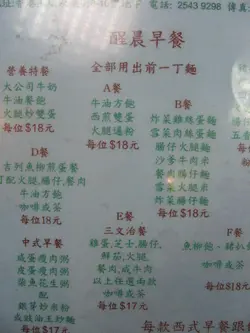 電話: 2543 9298 傳真:
醒晨早餐
營養特餐
大公司牛奶
牛油餐飽
火腿炒雙蛋
每位$18元
全部用出前一丁麵
A餐
牛油方飽
西煎雙蛋
火腿通粉
每位$18元
B餐
炸菜雞絲蛋麵
雪菜肉絲蛋麵
腸仔火腿麵
沙爹牛肉米
餐肉腸仔麵
雪菜火腿米
炸菜火腿麵
每位$18元
D餐
吉列魚柳煎蛋餐
可配火腿,腸仔,餐肉
牛油方飽
咖啡或茶
每位18元
中式早餐
皮蛋瘦肉粥
柴魚花生粥
每位$17元
E餐
三文治餐
雞蛋,芝士,腸仔,
鮮茄,火腿
餐肉,咸牛肉
以上任選兩款
咖啡或茶
每位$17元
F餐
咖啡或茶
每位$18
每款西式早餐